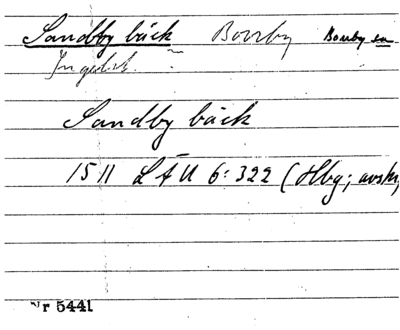 Sandby bäck Borrby Borrby sn
Ingelst. ~
Sandby bäck
15 11 LÄU 6:322 (Hbg; avskr.
Nr 5441